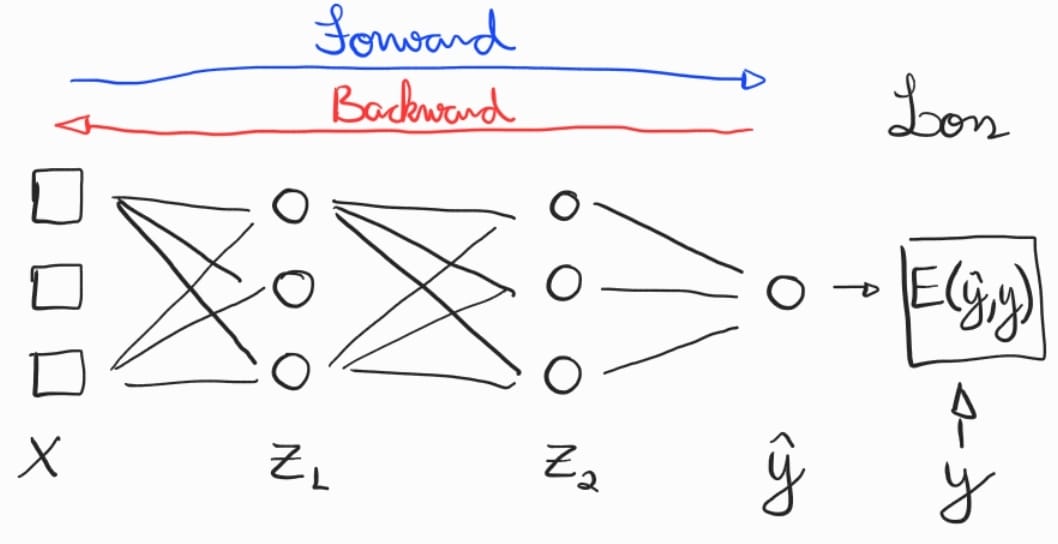 Forward
Backward
Loss
E(ŷ,y)
X
Z₁
Z₂
ŷ
y